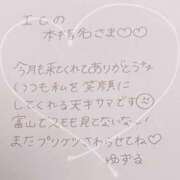 本指名さま♡♡
今月も来てくれてありがとうな
いつも私を笑顔に
してくれる天キサマです
富山でスモモ見てないな!
またプリケツさわらせてね♡
ゆずる